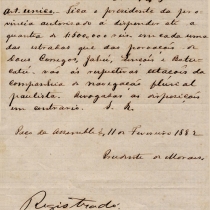 Art. unico. Fica o presidente da pro-
vincia autorisado a dispender até a
quantia de 1:600$000 réis em cada uma
das estradas que das povoações de
Dous Corregos, Jahú, Lençóes e Botu-
catú vão ás respectivas estações da
companhia de navegação fluvial
paulista. Revogadas as disposições
em contrario. S. R.
Paço da Assembléa, 11 de Fevereiro 1882
Prudente de Moraes
Registrado